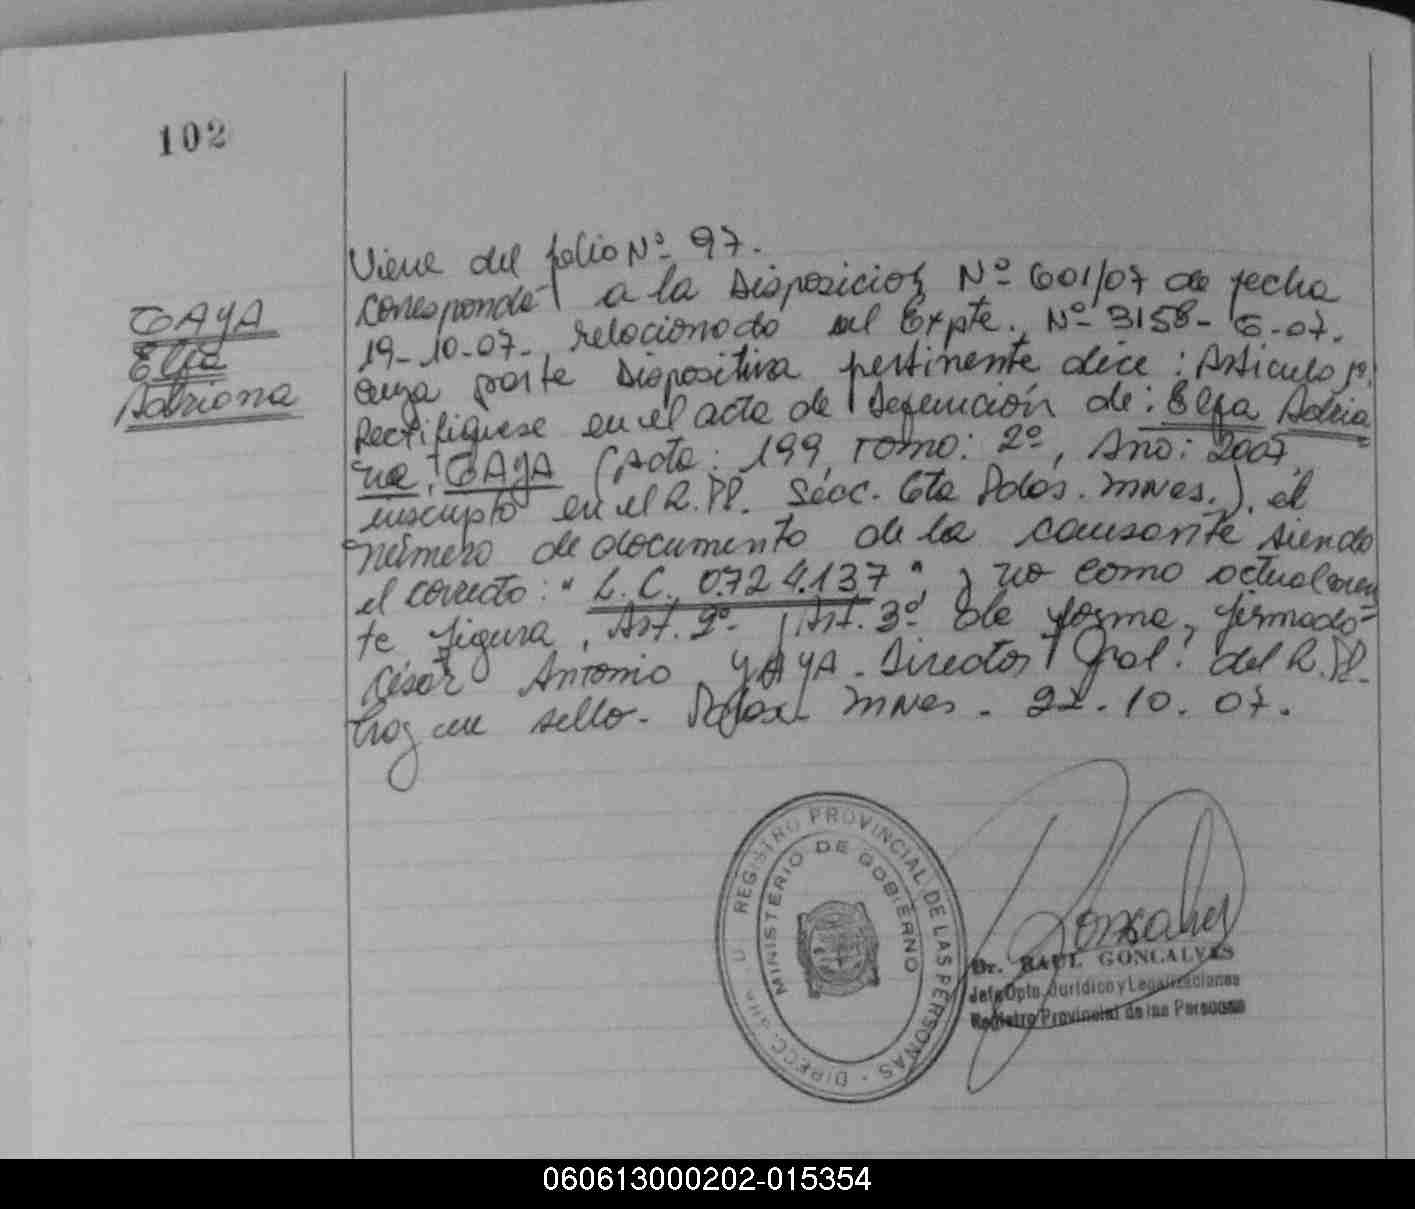 102
GAYA
Elfa
Adriana
Viene del folio Nº 97.
Corresponde a la Disposición Nº 601/07 de fecha
19-10-07- relacionado al Expte. Nº 3158- G-07.
cuya parte Dispositiva pertinente dice: Articulo 1º.
Rectifiquese en el acta de Defunción de: Elfa Adria
na, GAYA (Acta: 199, Tomo: 2º, Año: 2007,
inscripto en el R.PP. Secc. 6ta Pdas. Mnes.), el
número de documento de la causante siendo
el correcto: "L.C. 0.724.137", y no como actualmen
te figura, Art. 2º- Art. 3º de forma, firmado-
César Antonio YAYA- Director Gral. del R.PP.
Hay un sello- Pdas. Mnes- 22.10.07.
REGISTRO PROVINCIAL DE LAS PERSONAS - DIRECC. GRAL.
MINISTERIO DE GOBIERNO
Gonsalves
Dr. RAUL GONCALVES
Jefe Dpto. Jurídico y Legalizaciones
Registro Provincial de las Personas
060613000202-015354